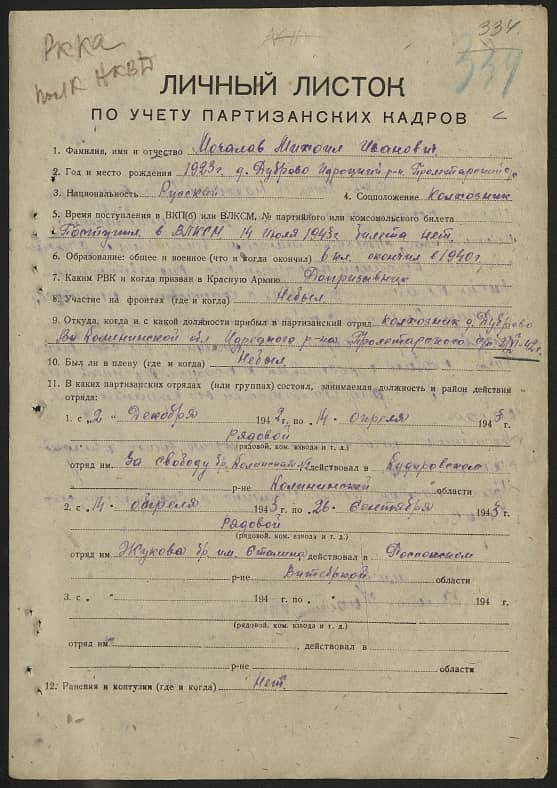 334
РККА
полк НКВД
334
ЛИЧНЫЙ ЛИСТОК
ПО УЧЕТУ ПАРТИЗАНСКИХ КАДРОВ
1. Фамилия, имя и отчество Мочалов Михаил Иванович
2. Год и место рождения 1923г. д. Дуброво Идрицкий р-н. Пролетарский с
3. Национальность Русский 4. Соцположение колхозник
5. Время поступления в ВКП(б) или ВЛКСМ, № партийного или комсомольского билета
Поступил в ВЛКСМ 14 июля 1943г билета нет.
6. Образование: общее и военное (что и когда окончил) 6 кл. окончил в 1940г.
7. Каким РВК и когда призван в Красную Армию Допризывник
8. Участие на фронтах (где и когда) Небыл
9. Откуда, когда и с какой должности прибыл в партизанский отряд колхозник д. Дуброво
Калининской обл Идрицкого р-на Пролетарского
10. Был ли в плену (где и когда) Небыл
11. В каких партизанских отрядах (или группах) состоял, занимаемая должность и район действия
отряда:
1. с „2“ Декабря 1942 г. по 14. апреля 1943 г.
Рядовой
(рядовой, ком. взвода и т. д.)
отряд им. За свободу бр. действовал в
р-не Калининской области
2. с 14. апреля 1943 г. по 26. сентября 1943 г.
Рядовой
(рядовой, ком. взвода и т. д.)
отряд им. Жукова бр. им. Сталина действовал в Россонском
р-не Витебской области
3. с „ “ 194 г. по 194 г.
(рядовой, ком. взвода и т. д.)
отряд им. , действовал в
р-не области
12. Ранения и контузии (где и когда) Нет.